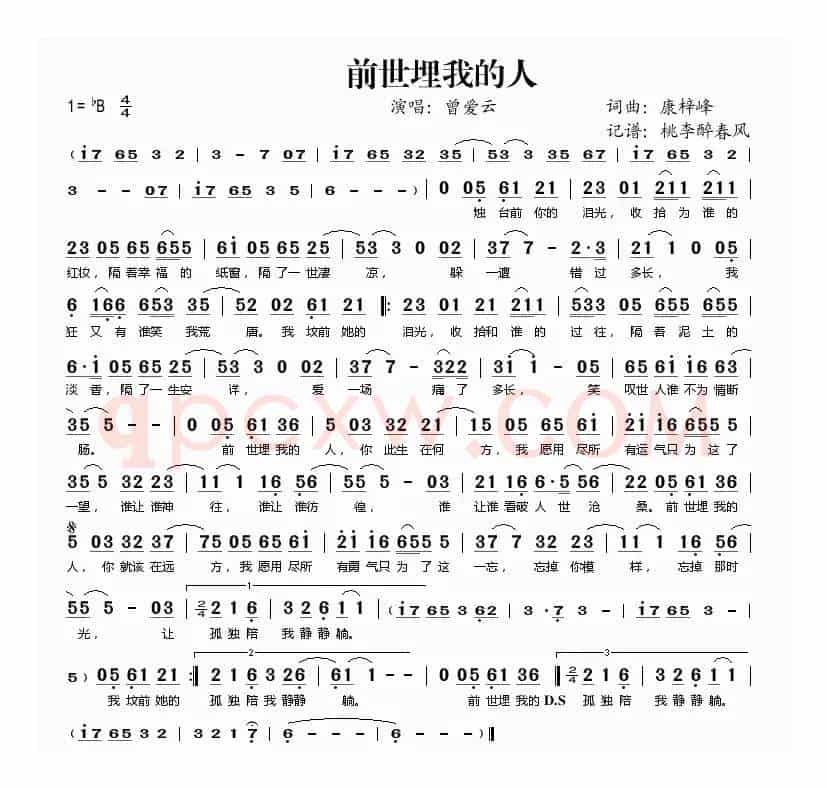 前世埋我的人
1= ♭B 4/4 演唱：曾爱云 词曲：康梓峰
记谱：桃李醉春风
( i7 65 3 2 | 3 - 7 07 | i7 65 35 65 32 35 | 53 3 35 67 | i7 65 3 2
3 - - 07 | i7 65 3 5 | 6 - - - ) | 0 05 61 21 | 23 01 211 211
烛 台前 你的 泪光，收 拾 为 谁 的
23 05 65 655 | 6i 05 65 25 | 53 3 0 02 | 37 7 - 2·3 | 21 1 0 05
红妆，隔着幸 福 的 纸窗，隔了一世凄 凉， 躲 一遭 错 过 多长， 我
6 166 653 35 | 52 02 61 21 ‖: 23 01 21 211 | 533 05 655 655
狂 又 有 谁笑 我荒 唐。我 坟前 她的 泪光，收 拾和 谁 的 过 往，隔 着 泥 土 的
6·i 05 65 25 | 53 3 0 02 | 37 7 - 322 | 21 1 - 05 | 65 6i i6 63
淡 香，隔了一 生安 详， 爱 一场 痛 了 多长， 笑 叹世 人谁 不为 情断
35 5 - - | 0 05 61 36 | 5 03 32 21 | 15 05 65 6i | 2i i6 655 5
肠。 前 世埋 我的 人，你 此生 在何 方，我 愿用 尽所 有运 气只 为 这 了
35 5 32 23 | 11 1 16 56 | 55 5 - 03 | 21 16 6·5 56 | 12 05 61 36
一望，谁让 谁神 往， 谁让 谁彷 徨， 谁 让谁 看破 人 世 沧 桑。前 世埋 我的
5 03 32 37 | 75 05 65 6i | 2i i6 655 5 | 37 7 32 23 | 11 1 16 56
人，你 就该 在远 方，我 愿用 尽所 有勇 气只 为 了 这 一忘，忘掉 你模 样，忘掉 那时
55 5 - 03 | 2/4 2 1 6 | 3 26 1 1 | ( i7 65 3 62 | 3 · 7 3 | i7 65 3 2
1
光， 让 孤 独 陪 我 静静 躺。
5 ) 05 61 21 :‖ 2 16 3 26 | 61 1 - - | 0 05 61 36 | 2/4 2 1 6 | 3 26 1 1
2 3
我 坟前 她的 孤 独陪 我静静 躺。 前 世埋 我的 D.S 孤 独 陪 我 静静 躺。
( i7 65 3 2 | 3 2 1 7 | 6 - - - | 6 - - - )‖
qpcxw.COM